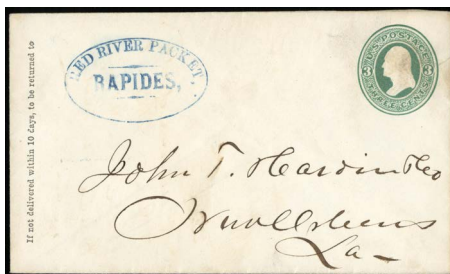 If not delivered within 10 days, to be returned to
RED RIVER PACKET.
RAPIDES,
U.S. POSTAGE
3 3
THREE CENTS
John T. Hardin & Co
New Orleans
La